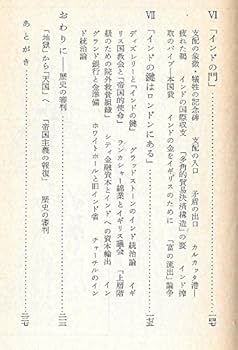 Ⅵ 「インドの門」…一四七
支配の象徴・犠牲の記念碑 支配の入口 矛盾の出口 カルカッタ港―
疲れた鶴 インドの国際収支 「多角的貿易決済構造」の要 インド搾
取のパイプ―本国費 インドの金をイギリスのために 「富の流出」論争
Ⅶ 「インドの鍵はロンドンにある」…一七五
ディズレリーと「インドの鍵」 グラッドストーンのインド統治論 イギ
リス国教会と「帝国的使命」 ランカシャー綿業とイギリス議会 「上層階
級のための院外救貧組織」 シティ金融資本とインドへの資本輸出 イン
グランド銀行と金準備 ホワイトホールと旧インド省 チャーチルのイン
ド
おわりに――歴史の審判…二一三
「地獄」から「天国」へ 「帝国主義の報復」 歴史の審判
あとがき…二三七